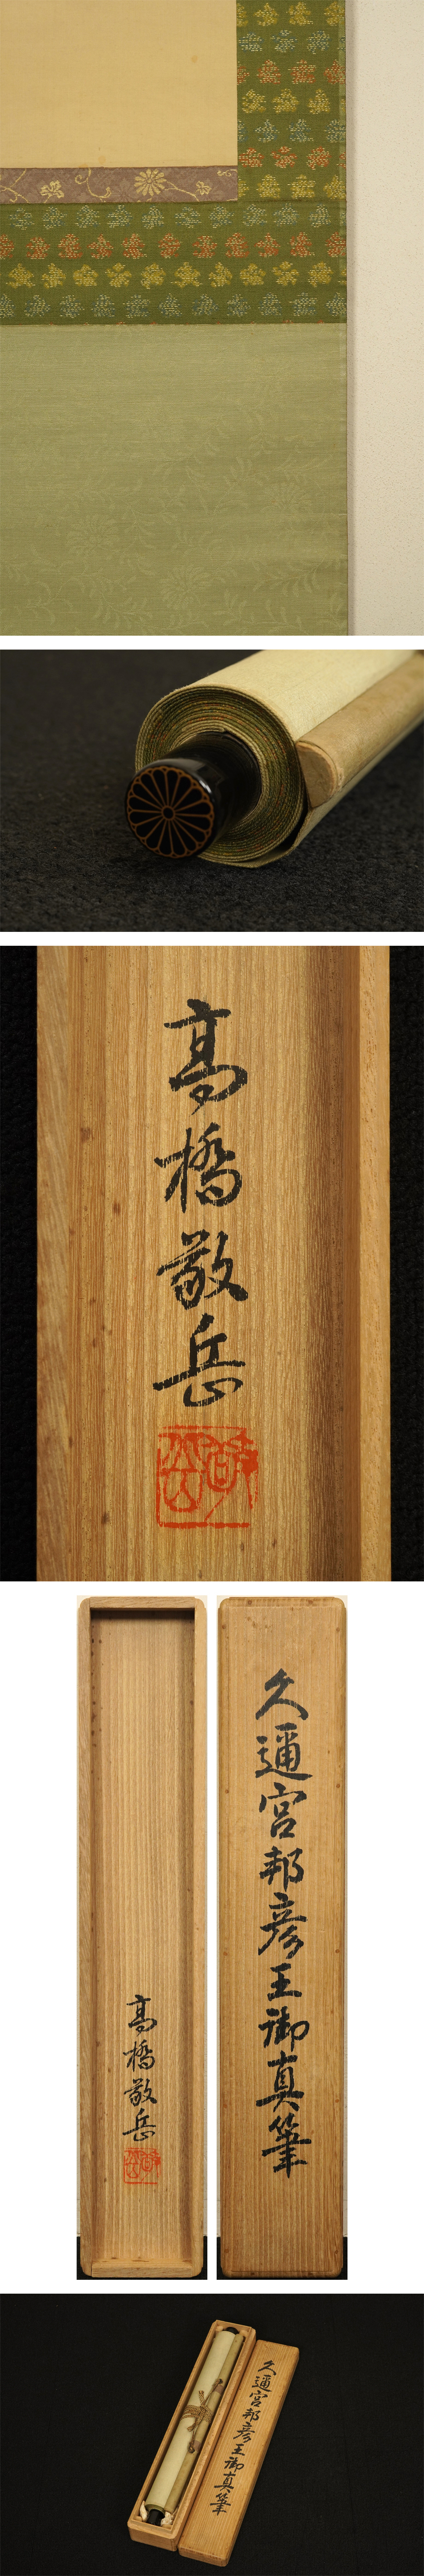 高橋敬岳
高橋敬岳
久邇宮邦彦王御真筆
久邇宮邦彦王御真筆